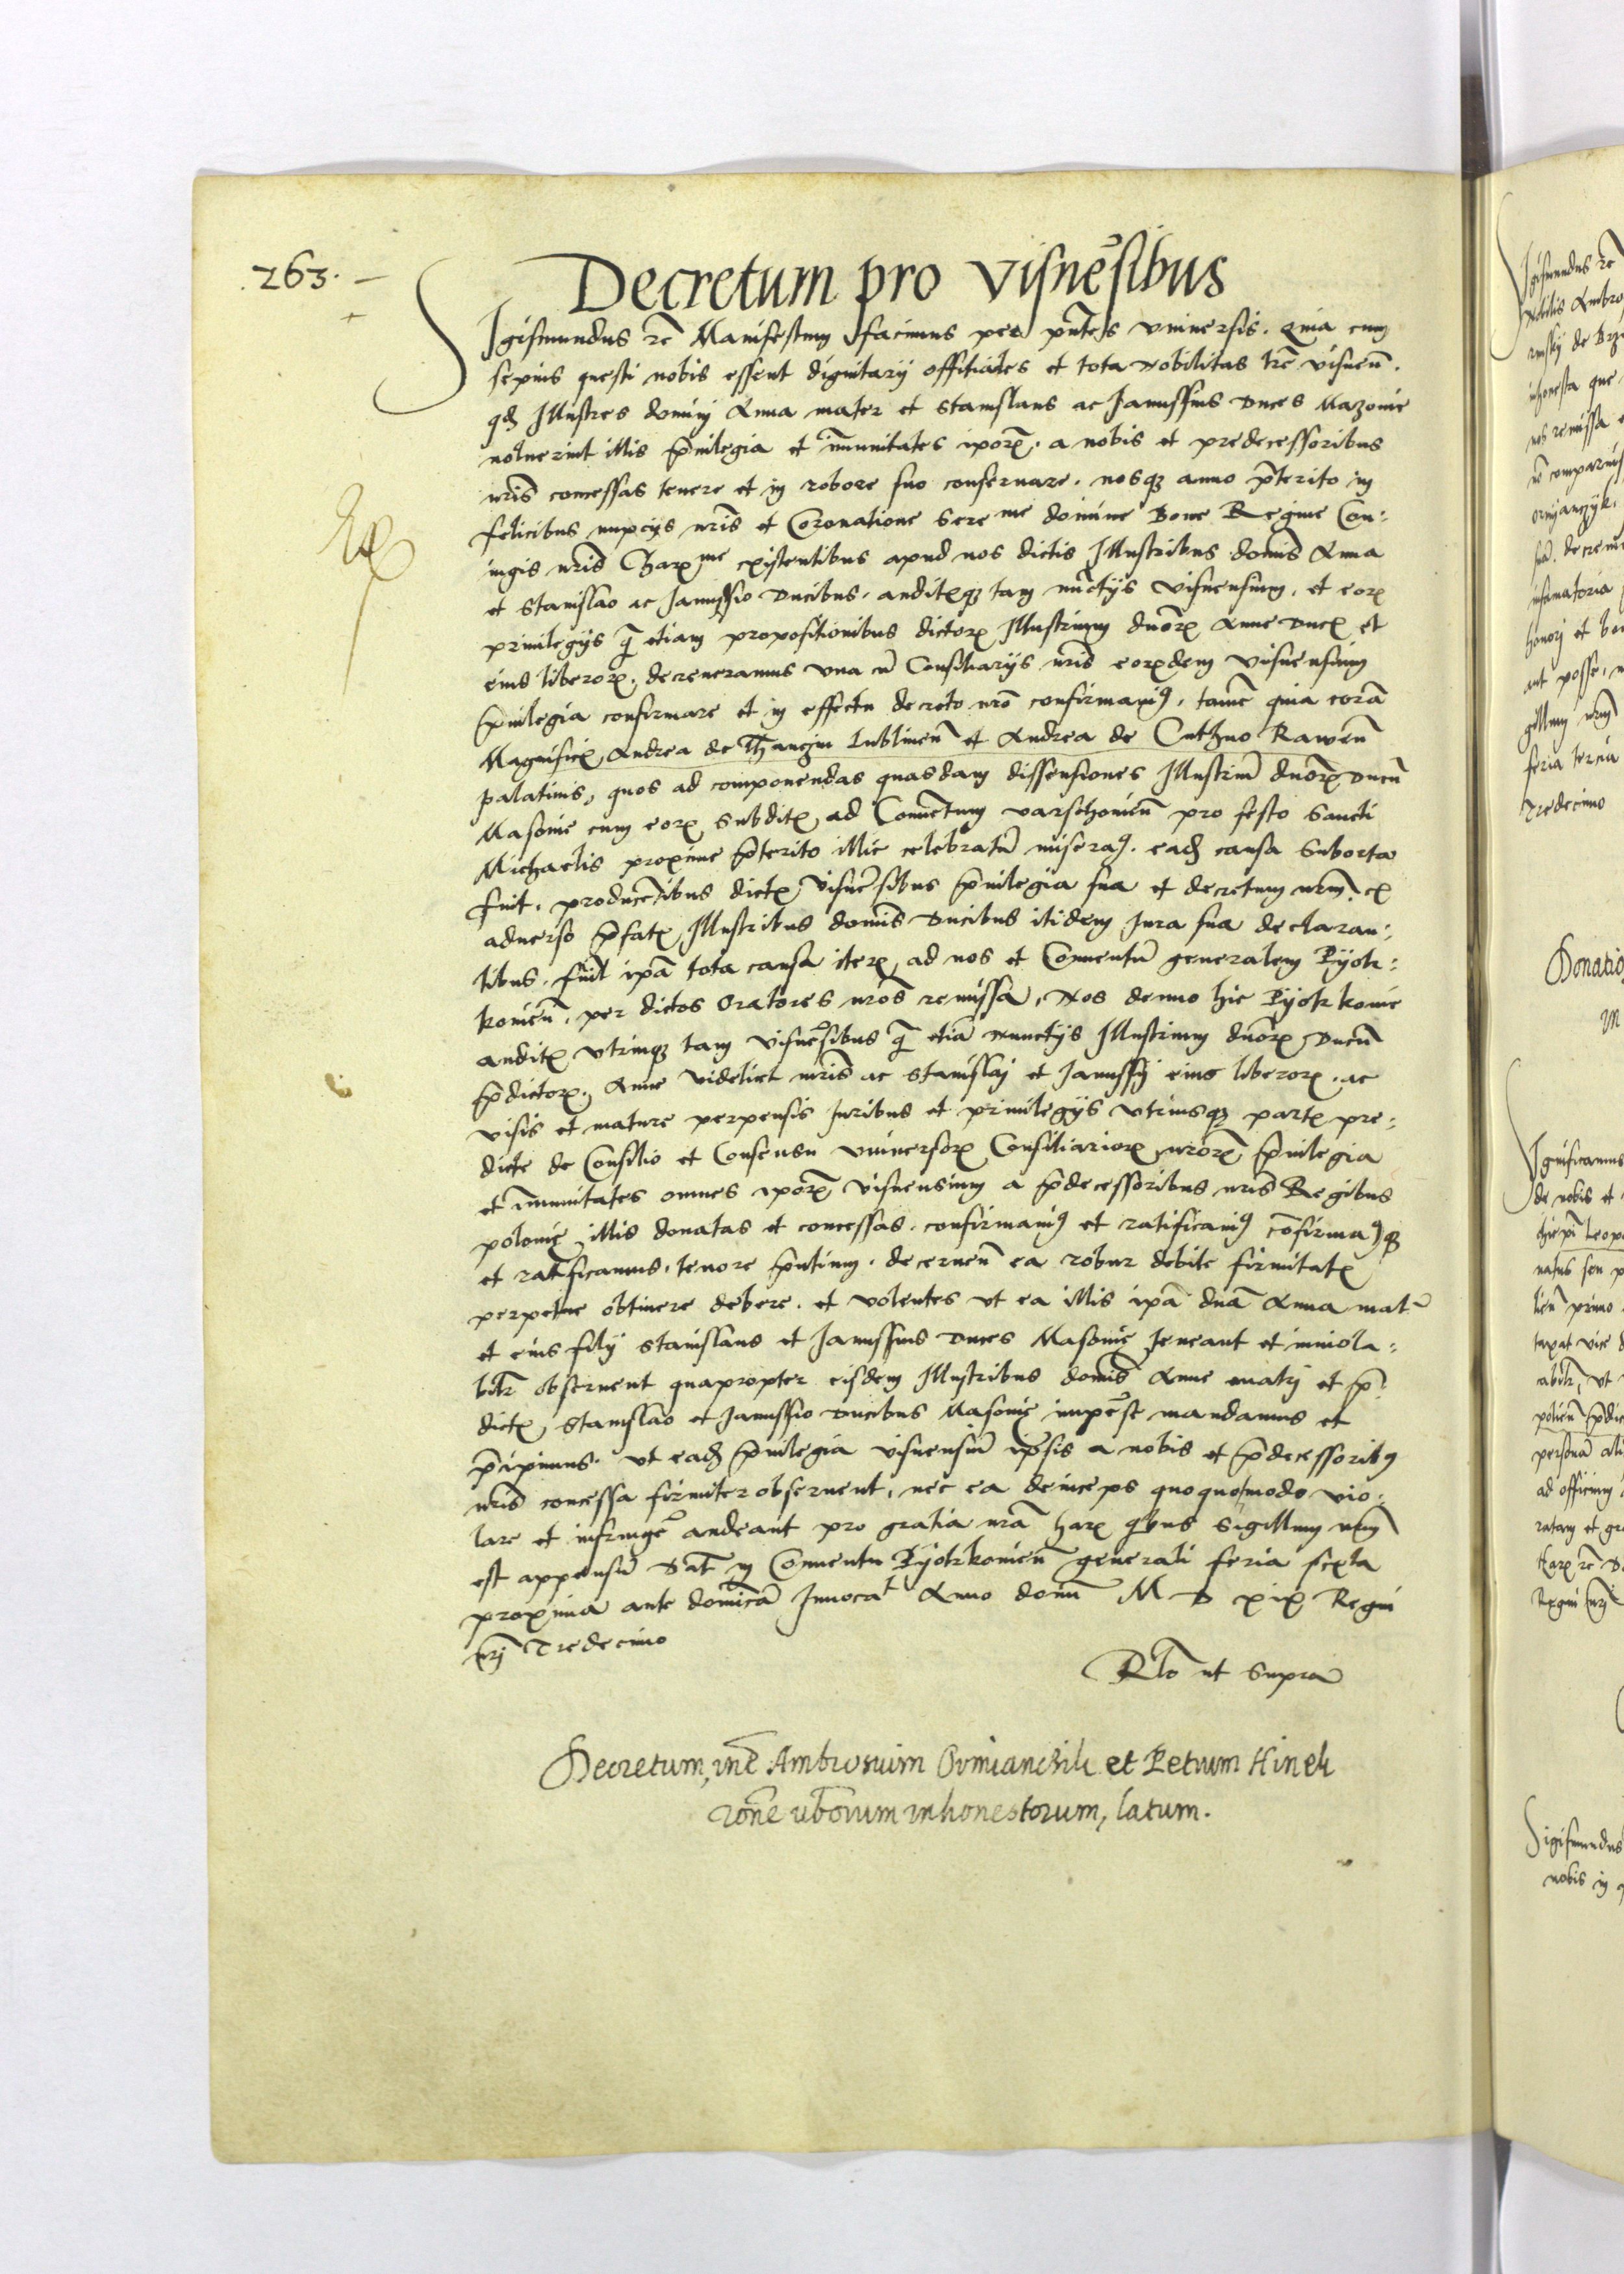 263.
Decretum pro visnēsibus
Sigismundus rc̄ Manifestum facimus per pn̄tes vniuersis. Quia cum
sepius questi nobis essent dignitarij offitiales et tota nobilitas tr̄e visnen̄.
qd Illustres domini Anna mater et Stanislaus ac Janussius duces Mazouie
noluerint illis priuilegia et im̄unitates ipor̄. a nobis et predecessoribus
nr̄is concessas tenere et in robore suo conseruare. nosq3 anno p̄terito in
felicibus nupcijs nr̄is et Coronatione Sere me domine Bone Regine Con:
iugis nr̄is Charx me existentibus apud nos dictis Illustribus domīs Anna
et Stanislao ac Janussio ducibus. auditisq3 tam nūctijs visnensium, et eorx
priuilegijs q̄ etiam propositionibus dictorx Illustrium dnōrx Anne ducx et
eius liberorx. decreueramus vna cū Consiliarijs nr̄is eorxdem visnensium
p̄uilegia confirmare et in effectu decreto nr̄o confirmauim9, tamē quia corā
Magnificx Andrea de Thanczin Lublinen̄ et Andrea de Cuthno Rawen̄
palatinis, quos ad componendas quasdam dissensiones Illustriū dnōrx ducū
Masouie cum eorx subditx ad Conuētum varschouien̄ pro festo Sancti
Michaelis proxime p̄terito illic celebratū misera9. ead causa suborta
fuit. producētibus dictx visnēsibus p̄uilegia sua et decretum nr̄m. ex
aduerso p̄fatx Illustribus domīs ducibus itidem Jura sua declaran:
tibus. fuit ipā tota causa iterx ad nos et Conuentū generalem Pyotr:
kouien̄. per dictos oratores nr̄os remissa, Nos denuo hic Pyotrkouie
auditx vtrinq3 tam visnēsibus q̄ etiā nunctijs Illustrium dnōrx ducū
p̄dictorx. Anne videlicet mr̄is ac Stanislaj et Janussij eius liberorx. ac
visis et mature perpensis Juribus et priuilegijs vtriusq3 partx pre:
dicte de Consilio et Consensu vniuersorx Consiliariorx nr̄orx p̄uilegia
et im̄unitates omnes iporx visnensium a p̄decessoribus nr̄is Regibus
polonie illis donatas et concessas. confirmauim9 et ratificauim9 cōfirma9q3
et ratificamus. tenore p̄ntium. decernen̄ ea robur debite firmitatx
perpetue obtinere debere. et volentes vt ea illis ipā dnā Anna mat̄
et eius filij Stanislaus et Janussius duces Masouie teneant et inuiola:
bitr̄ obseruent quapropter eisdem Illustribus domīs Anne matrj et p̄
dictx Stanislao et Janussio ducibus Masouie impēse mandamus et
p̄cipimus. vt ead p̄uilegia visnensiū ip̄sis a nobis et p̄decessorib9
nr̄is concessa firmiter obseruent, nec ea deinceps quoquomodo vio:
lare et infringe audeant pro gratia nr̄a harx quibus Sigillum nr̄m
est appensū Dat̄ in Conuentu Pyotrkouien̄ generali feria sexta
proxima ante domīcā Inuocat Anno domī M D xix Regni
nrj Tredecimo
Rlō ut Supra
Decretum, int̄ Ambrosium Ormianchik et Petrum Hinek
rōne vb̄orum inhonestorum, latum.